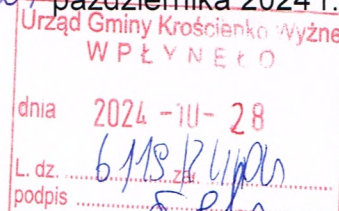 października 2024 r.
Urząd Gminy Krościenko Wyżne
WPŁYNĘŁO
dnia 2024 -10- 28
L. dz. ........ zał. ........
podpis ........